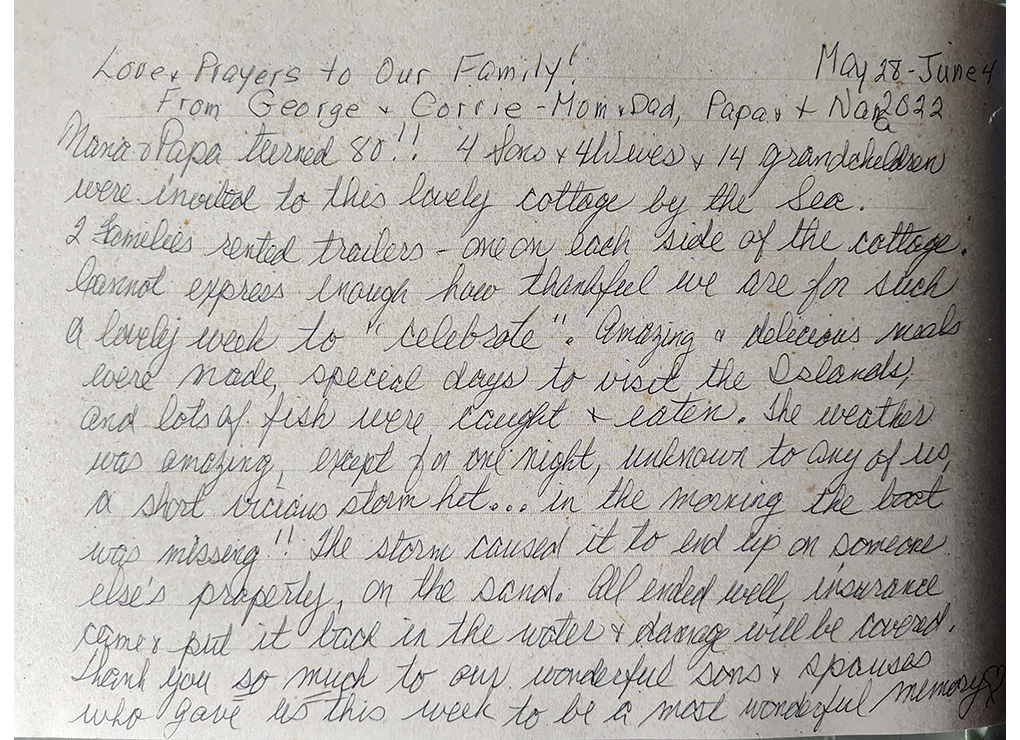 Love & Prayers to Our Family!
May 28-June 4
From George & Corrie - Mom & Dad, Papa & + Nana 2022
Nana & Papa turned 80!! 4 Sons & 4 Wives & 14 grandchildren
were invited to this lovely cottage by the Sea.
2 Families rented trailers - one on each side of the cottage.
Cannot express enough how thankful we are for such
a lovely week to "celebrate". Amazing & delecious meals
were made, special days to visit the Islands,
and lots of fish were caught & eaten. The weather
was amazing, except for one night, unknown to any of us,
a short vicious storm hit... in the morning the boat
was missing!! The storm caused it to end up on someone
else's property, on the sand. All ended well, insurance
came & put it back in the water & damage will be covered.
Thank you so much to our wonderful sons & spouses
who gave us this week to be a most wonderful memory ♡